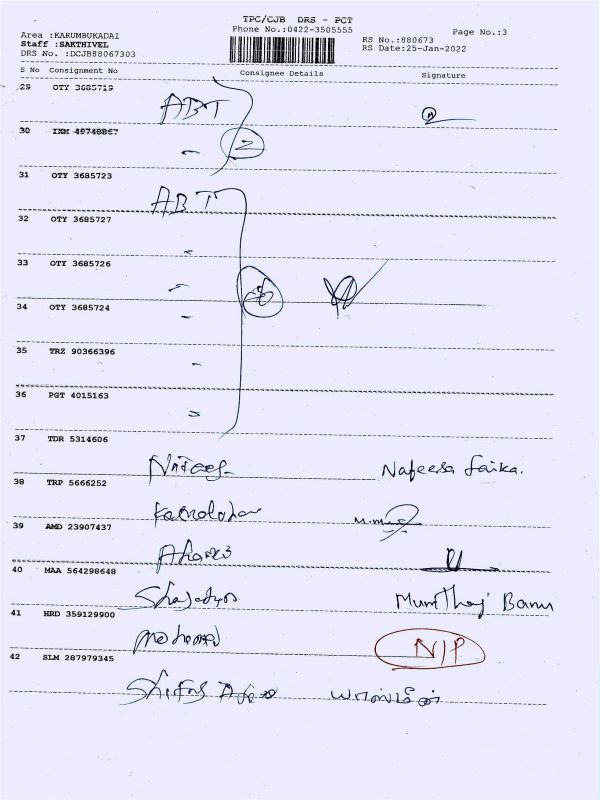 TPC/CJB DRS - PCT
Phone No.:0422-3505555
Page No.:3
Area :KARUMBUKADAI
RS No.:880673
Staff :SAKTHIVEL
RS Date:25-Jan-2022
DRS No. :DCJB88067303
S No Consignment No Consignee Details Signature
29 OTY 3685719
ABT
30 IXM 49748867
2
31 OTY 3685723
ABT
32 OTY 3685727
33 OTY 3685726
34 OTY 3685724
35 TRZ 90366396
36 PGT 4015163
37 TDR 5314606
Nafeesa Faika.
38 TRP 5666252
39 AMD 23907437
40 MAA 564298648
Mumthaj Banu
41 HRD 359129900
N/P
42 SLM 287979345
யாஸ்மின்